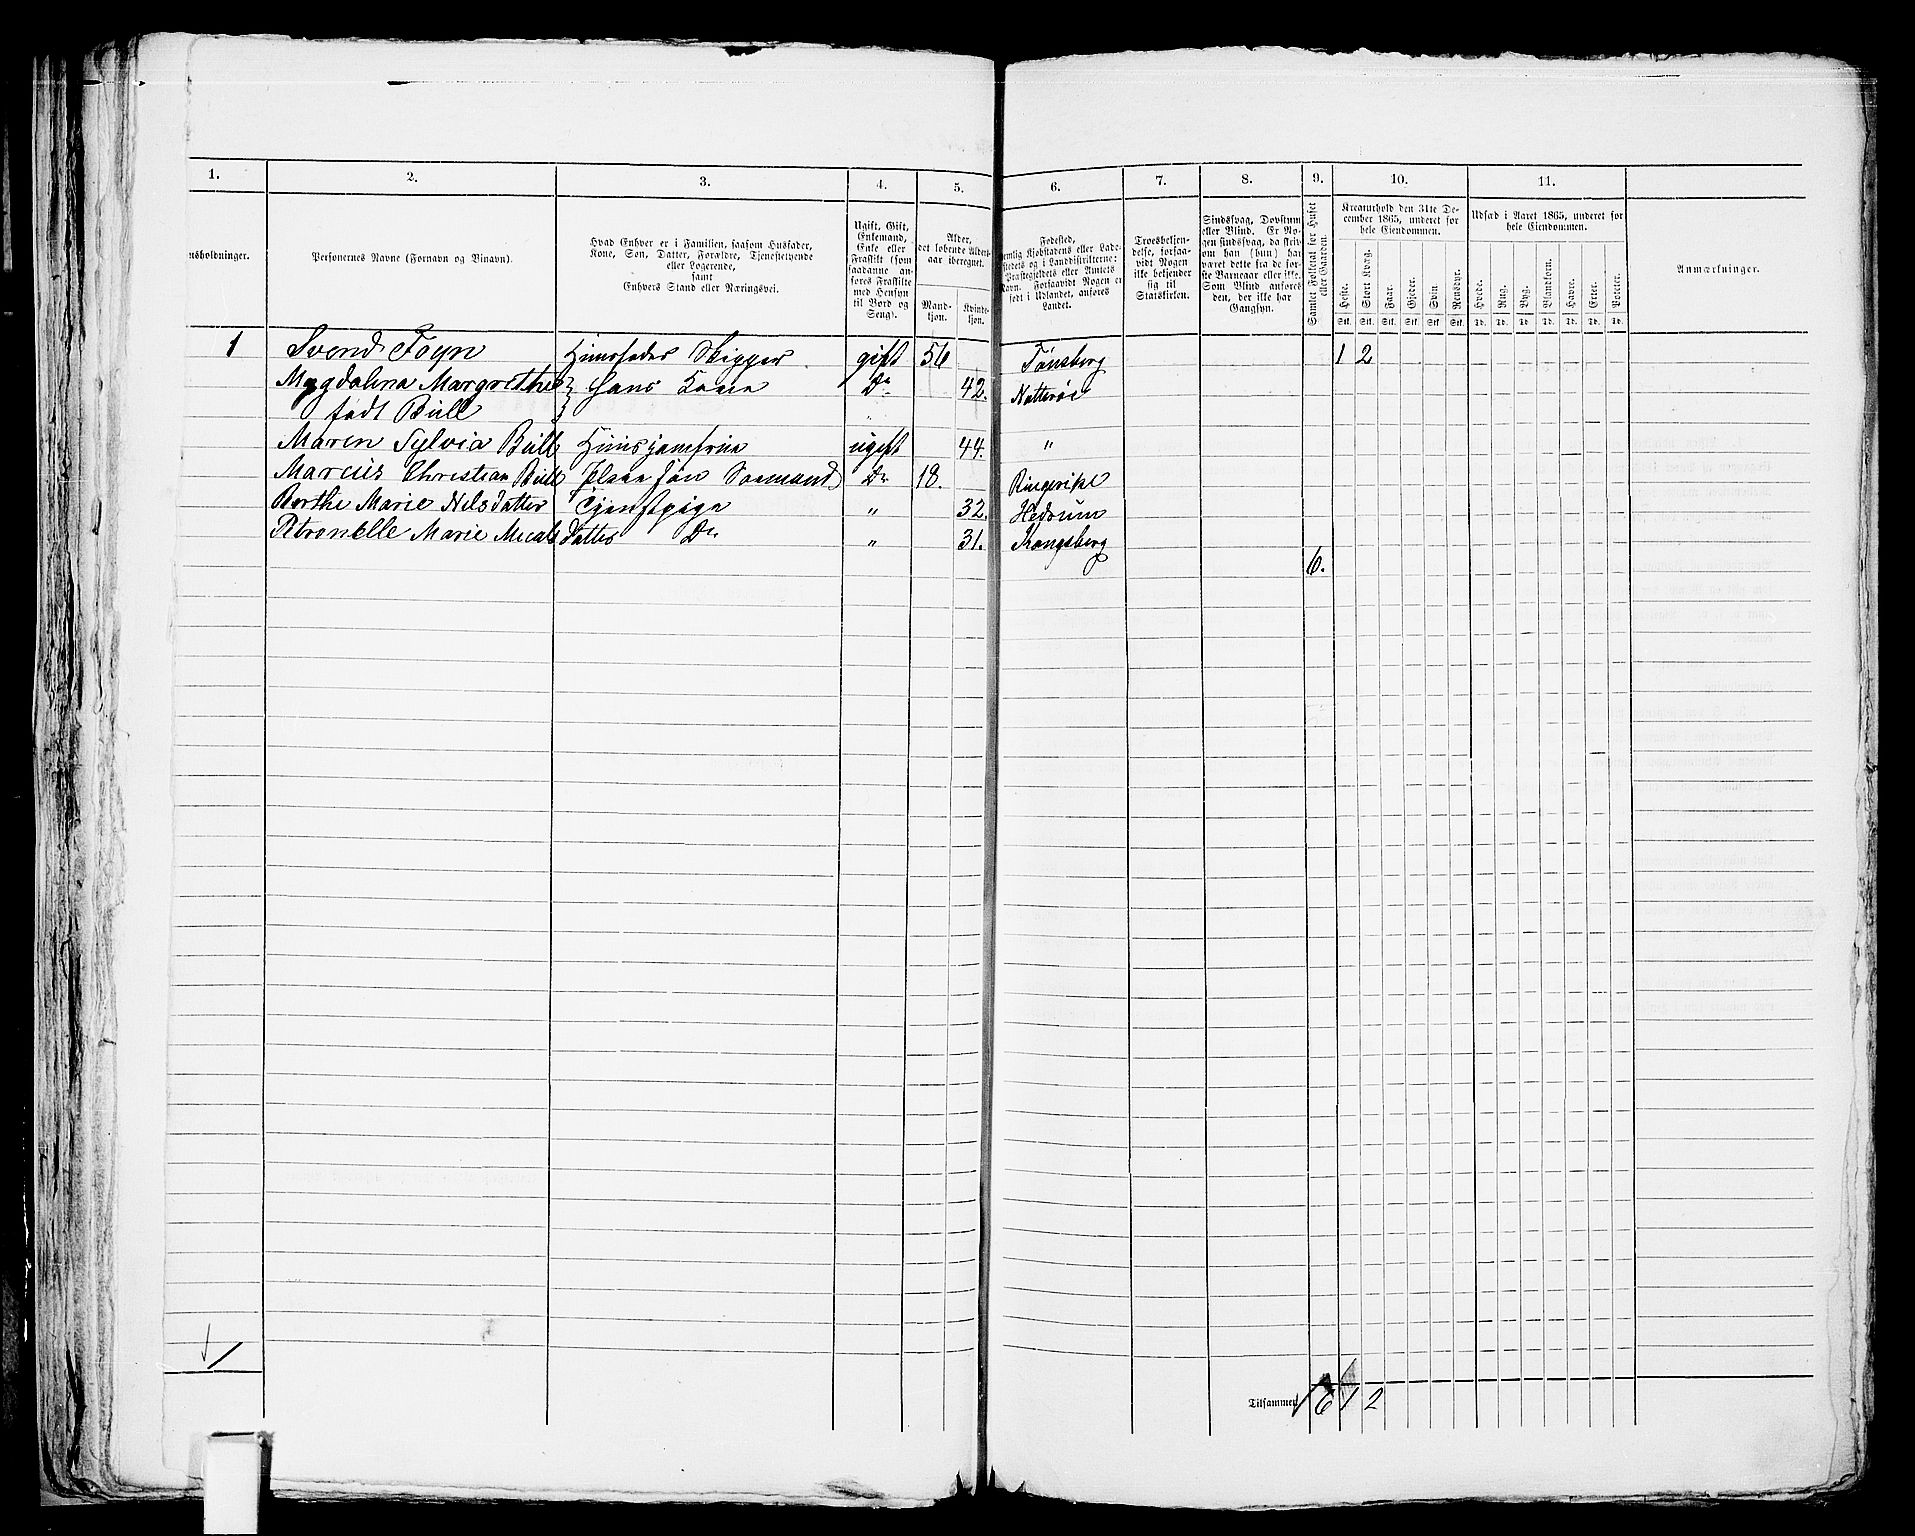 1. 2. 3. 4. 5. 6. 7. 8. 9. 10. 11.
nsholdninger.
Personernes Navne (Fornavn og Binavn).
Hvad Enhver er i Familien, saasom Husfader,
Kone, Søn, Datter, Forældre, Tjenestetyende
eller Logerende,
samt
Enhvers Stand eller Næringsvei.
Ugift, Gift,
Enkemand,
Enke eller
Fraskilt (som
saadanne an-
føres Fraskilte
med Hensyn
til Bord og
Seng).
Alder,
det løbende Alders-
aar iberegnet.
Mand-
kjøn.
Kvinde-
kjøn.
Fødested,
emlig Kjøbstadens eller Lade-
stedets og i Landdistrikterne:
Præstegjeldets eller Amtets
Navn. Forsaavidt Nogen er
født i Udlandet, anføres
Landet.
Troesbekjen-
delse, forsaa-
vidt Nogen
ikke bekjender
sig til
Statskirken.
Sindssvag, Døvstum
eller Blind. Er No-
gen sindssvag, da skriv
om han (hun) har
været dette fra de før-
ste Barneaar eller ikke.
Som Blind anføres
den, der ikke har
Gangsyn.
Samlet Folketal for Huset
eller Gaarden.
Kreaturhold den 31te De-
cember 1865, underet for
hele Eiendommen.
Heste. Stort Kvæg. Faar. Gjeder. Svin. Rensdyr.
Stk. Stk. Stk. Stk. Stk. Stk.
Udsæd i Aaret 1865, underet for
hele Eiendommen.
Hvede. Rug. Byg. Blandkorn. Havre. Erter. Poteter.
Td. Td. Td. Td. Td. Td. Td.
Anmærkninger.
1 Svend Foyn Huusfader Skipper gift 56 Tønsberg 1 2
Magdalena Margrethe } Hans Kone Do 42. Nøtterøe
født Bull }
Maren Sylvia Bull Huusjomfrue ugift 44. "
Marcus Christian Bull Pleiesøn Sømand Do 18. Ringerike
Berthe Marie Nilsdatter Tjenstpige " 32. Hedrum
Petronelle Marie datter Do " 31. Kongsberg
6.
1
Tilsammen 6 1 2